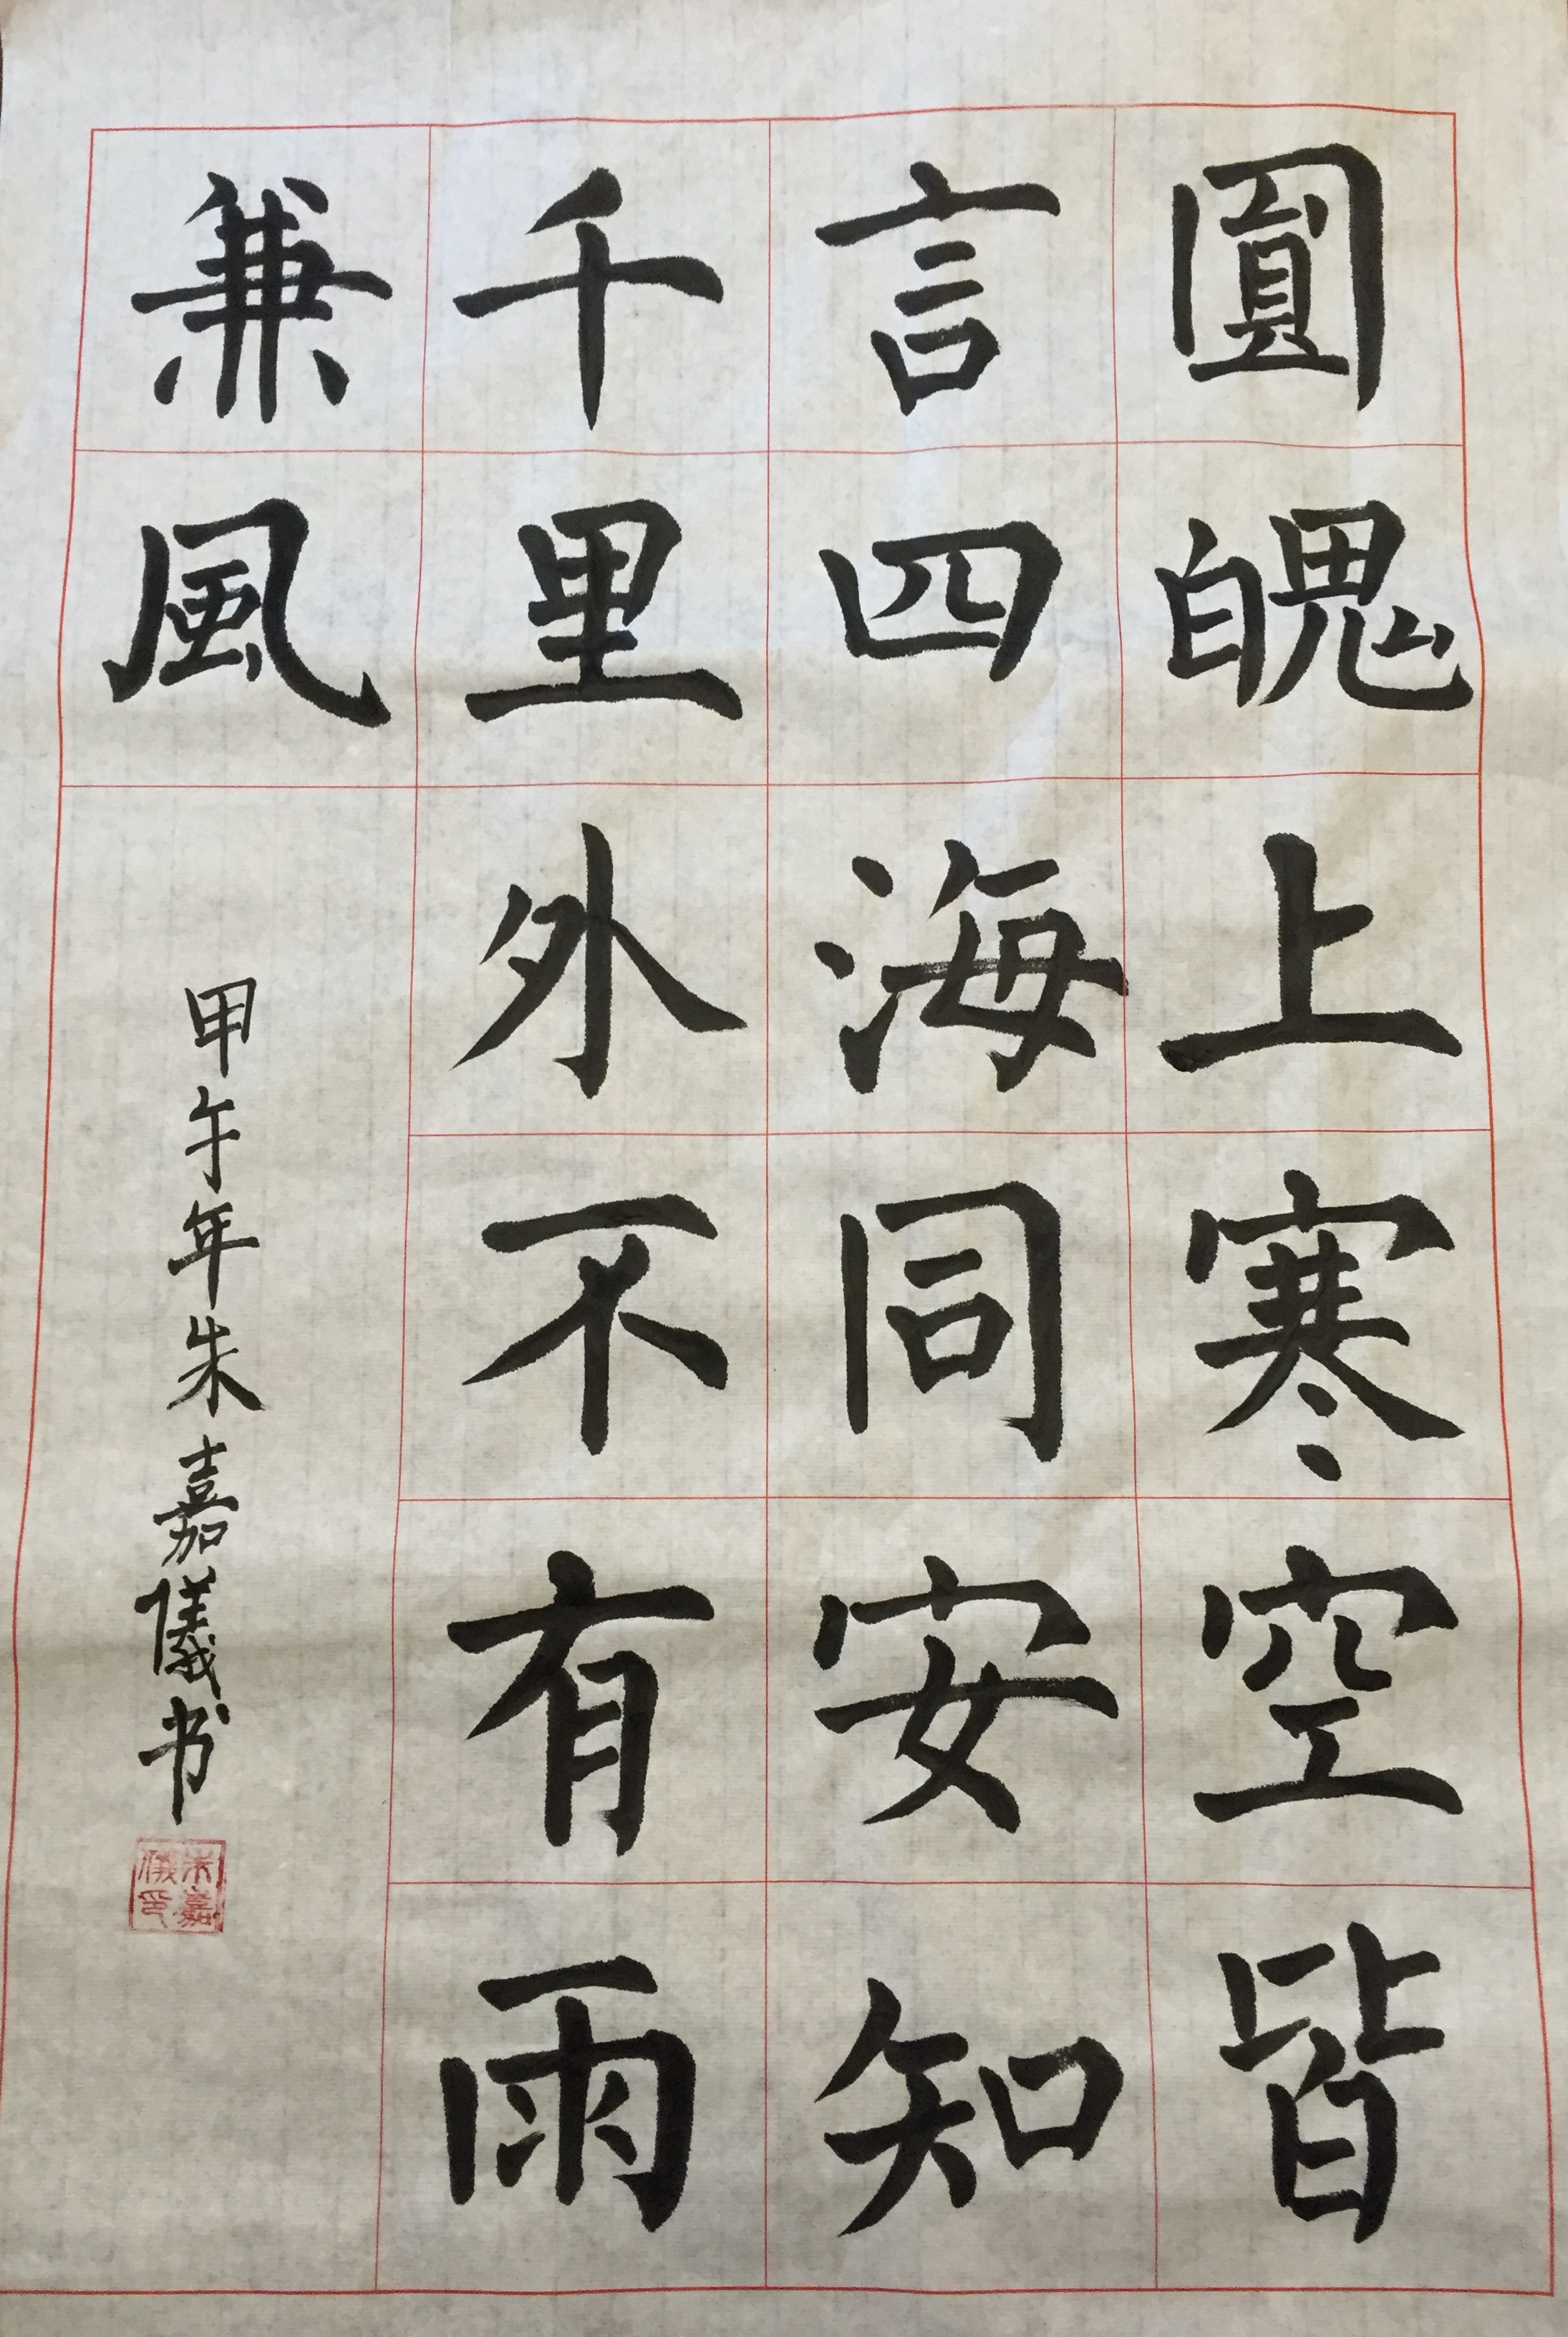 圓魄上寒空皆
言四海同安知
千里外不有雨
兼風
甲午年朱嘉儀书
朱嘉
儀印